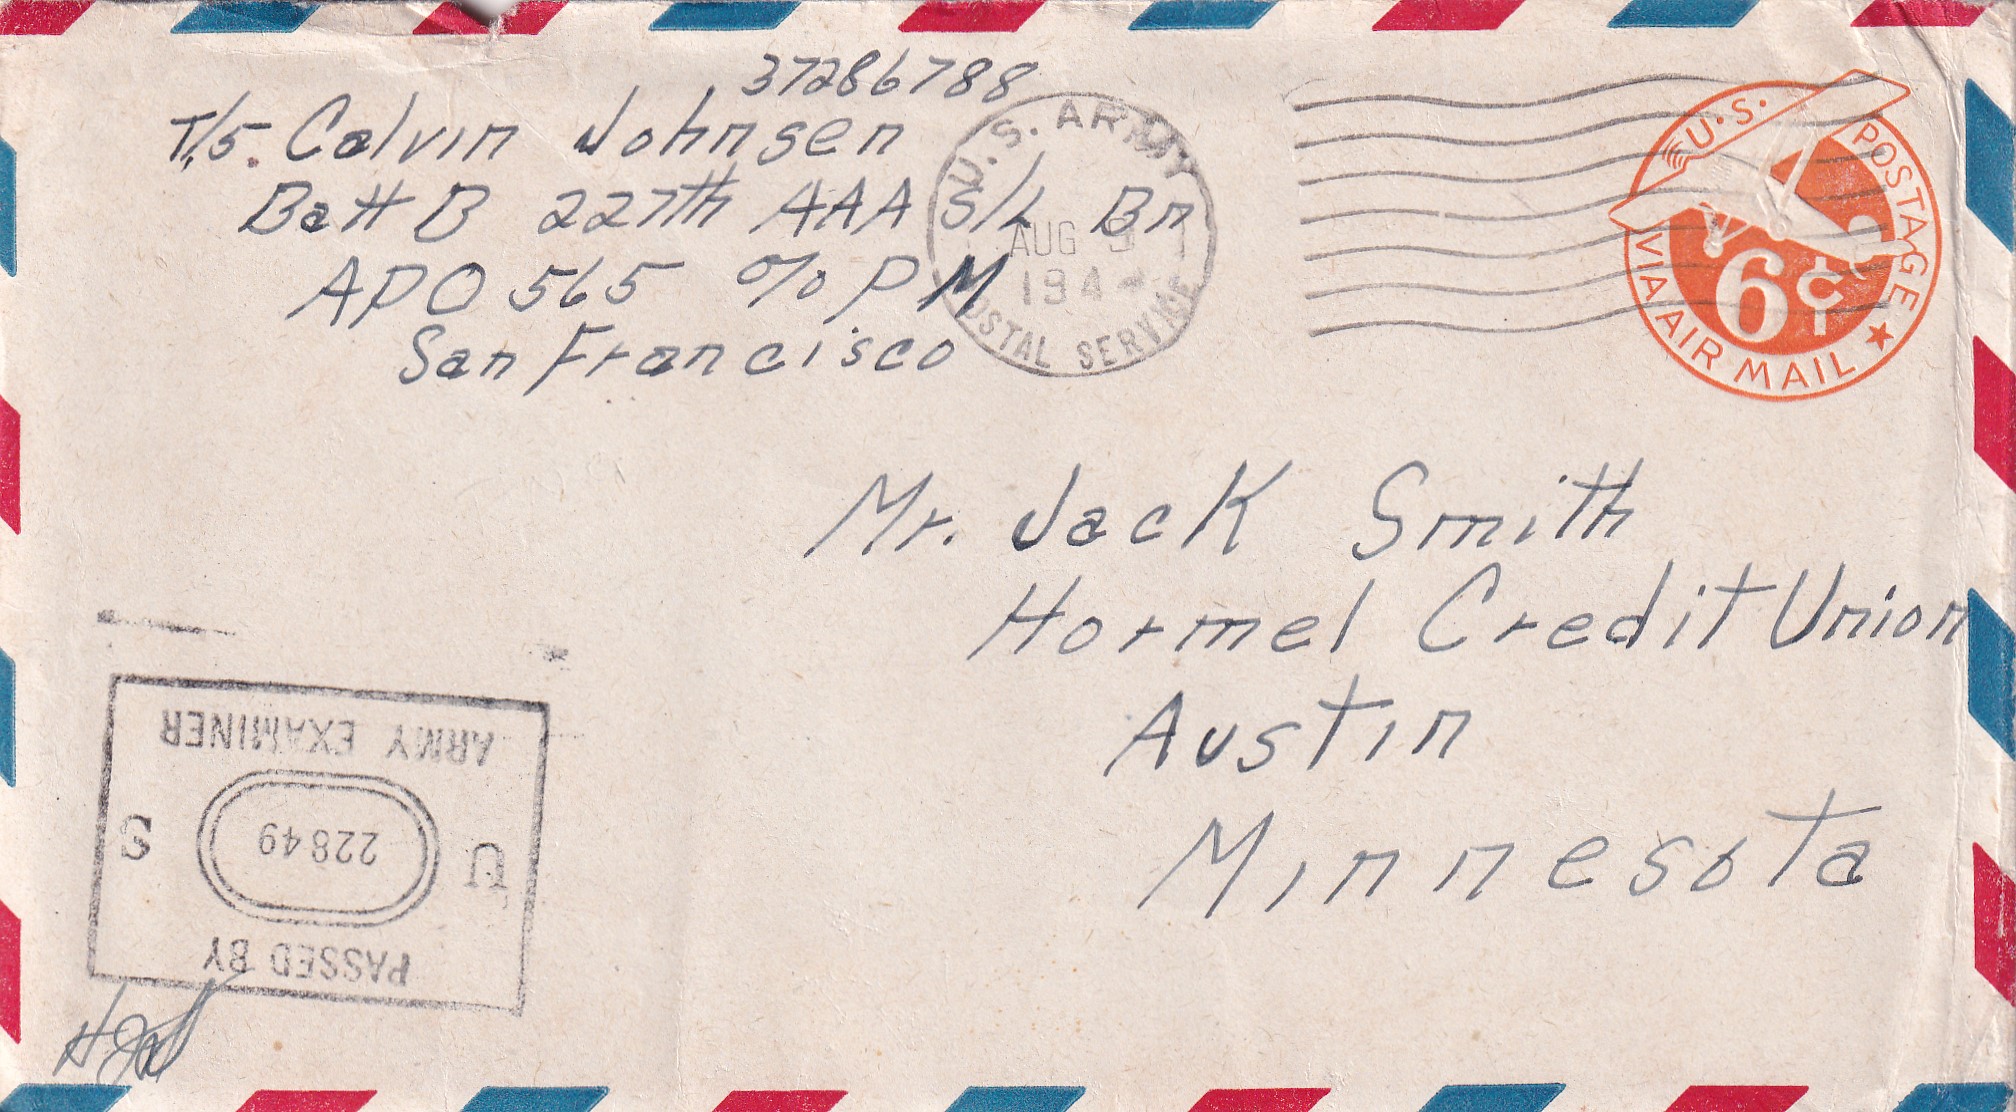 37286788
T/5. Calvin Johnsen
Batt B 227th AAA S/L Bn
APO 565 c/o PM
San Francisco
U.S. ARMY
AUG
194
POSTAL SERVICE
U.S. POSTAGE
6¢
VIA AIR MAIL
Mr. Jack Smith
Hormel Credit Union
Austin
Minnesota
PASSED BY
U 22849 S
ARMY EXAMINER